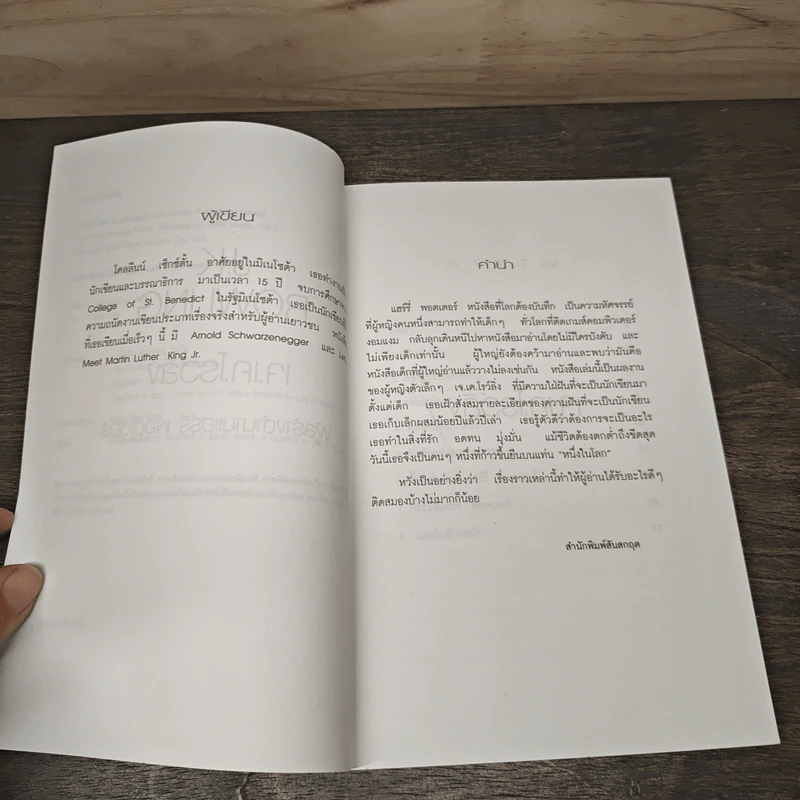 ผู้เขียน
โคลลีนน์ เซ็กซ์ตั้น อาศัยอยู่ในมิเนโซต้า เธอทำงานเป็น
นักเขียนและบรรณาธิการ มาเป็นเวลา 15 ปี จบการศึกษา
College of St. Benedict ในรัฐมิเนโซต้า เธอเป็นนักเขียน
ความถนัดงานเขียนประเภทเรื่องจริงสำหรับผู้อ่านเยาวชน
ที่เธอเขียนเมื่อเร็วๆ นี้ มี Arnold Schwarzenegger และ
Meet Martin Luther King Jr.
คำนำ
แฮร์รี่ พอตเตอร์ หนังสือที่โลกต้องบันทึก เป็นความหัศจรรย์
ที่ผู้หญิงคนหนึ่งสามารถทำให้เด็กๆ ทั่วโลกที่ติดเกมส์คอมพิวเตอร์
งอมแงม กลับลุกเดินหนีไปหาหนังสือมาอ่านโดยไม่มีใครบังคับ และ
ไม่เพียงเด็กเท่านั้น ผู้ใหญ่ยังต้องคว้ามาอ่านและพบว่ามันคือ
หนังสือเด็กที่ผู้ใหญ่อ่านแล้ววางไม่ลงเช่นกัน หนังสือเล่มนี้เป็นผลงาน
ของผู้หญิงตัวเล็กๆ เจ.เค.โรว์ลิ่ง ที่มีความใฝ่ฝันที่จะเป็นนักเขียนมา
ตั้งแต่เด็ก เธอเฝ้าสั่งสมรายละเอียดของความฝันที่จะเป็นนักเขียน
เธอเก็บเล็กผสมน้อยปีแล้วปีเล่า เธอรู้ตัวดีว่าต้องการจะเป็นอะไร
เธอทำในสิ่งที่รัก อดทน มุ่งมั่น แม้ชีวิตต้องตกต่ำถึงขีดสุด
วันนี้เธอจึงเป็นคนๆ หนึ่งที่ก้าวขึ้นยืนบนแท่น "หนึ่งในโลก"
หวังเป็นอย่างยิ่งว่า เรื่องราวเหล่านี้ทำให้ผู้อ่านได้รับอะไรดีๆ
ติดสมองบ้างไม่มากก็น้อย
สำนักพิมพ์สันสกฤต